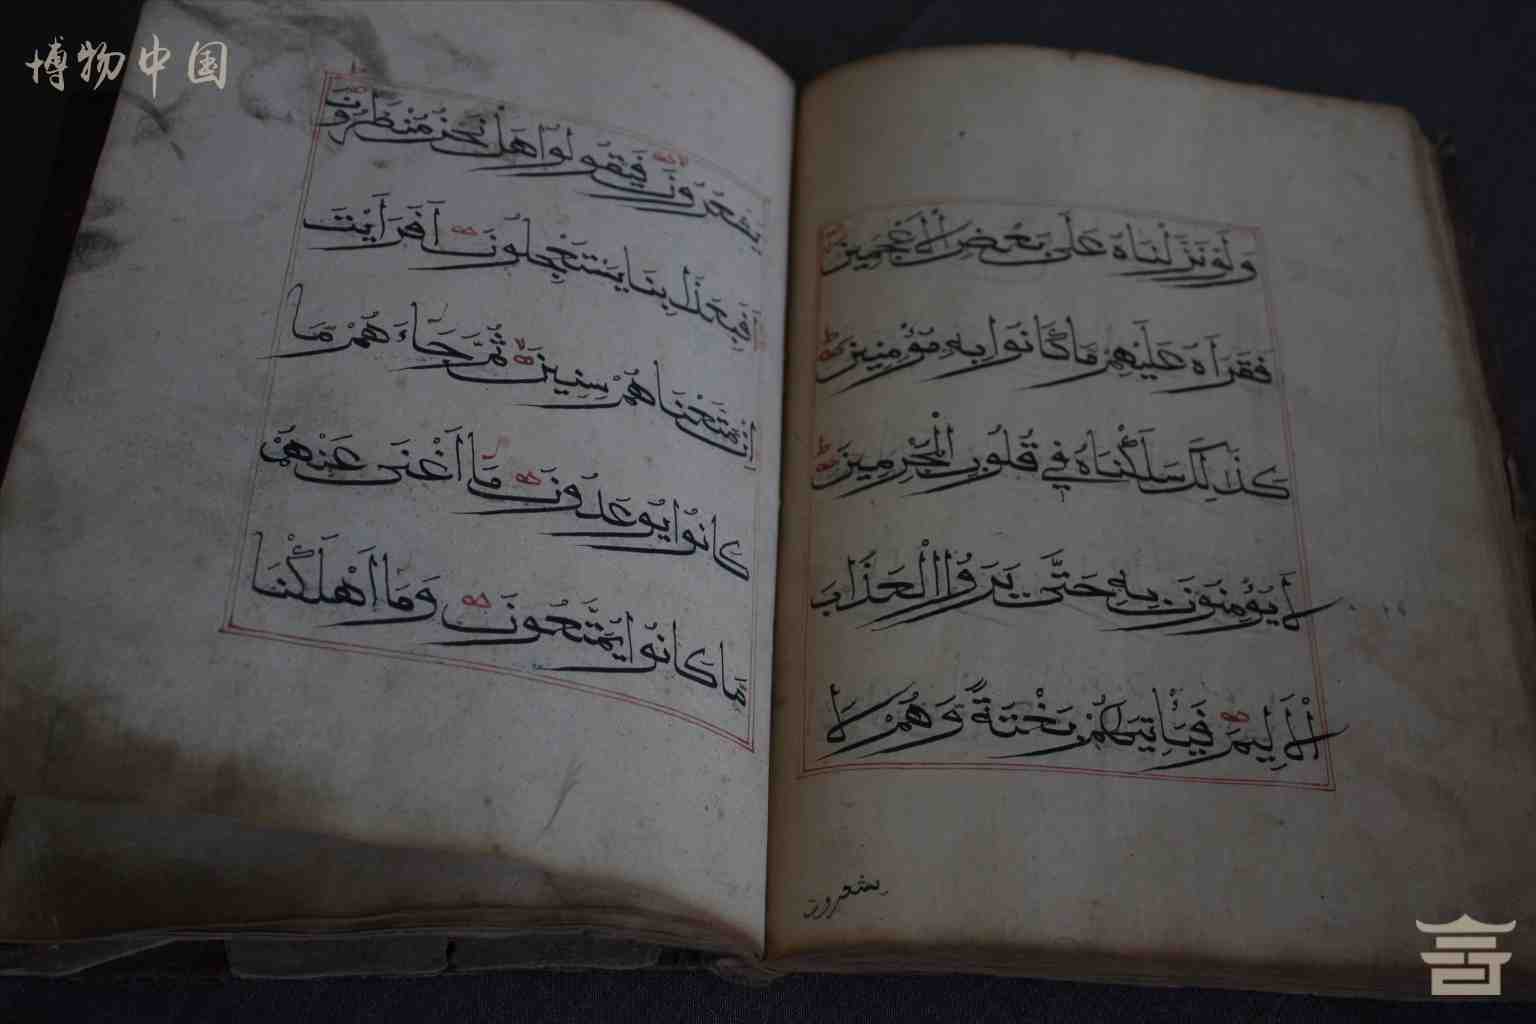 博物中国
وَلَوْ نَزَّلْنَاهُ عَلَى بَعْضِ الْأَعْجَمِينَ
فَقَرَأَهُ عَلَيْهِمْ مَا كَانُوا بِهِ مُؤْمِنِينَ
كَذَلِكَ سَلَكْنَاهُ فِي قُلُوبِ الْمُجْرِمِينَ
لَا يُؤْمِنُونَ بِهِ حَتَّى يَرَوُا الْعَذَابَ
الْأَلِيمَ فَيَأْتِيَهُمْ بَغْتَةً وَهُمْ لَا
يشعرون
يَشْعُرُونَ فَيَقُولُوا هَلْ نَحْنُ مُنْظَرُونَ
أَفَبِعَذَابِنَا يَسْتَعْجِلُونَ أَفَرَأَيْتَ
إِنْ مَتَّعْنَاهُمْ سِنِينَ ثُمَّ جَاءَهُمْ مَا
كَانُوا يُوعَدُونَ مَا أَغْنَى عَنْهُمْ
مَا كَانُوا يُمَتَّعُونَ وَمَا أَهْلَكْنَا